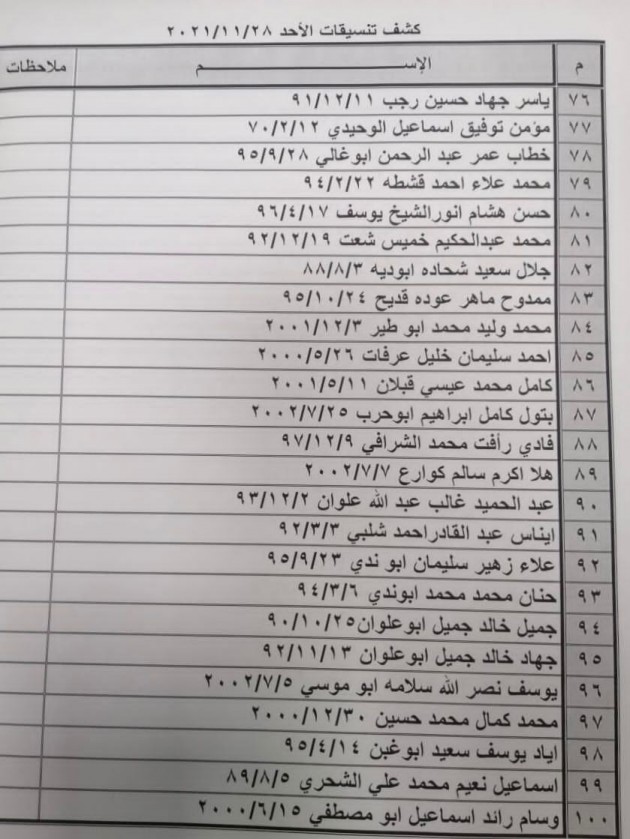 كشف تنسيقات الأحد ٢٠٢١/١١/٢٨
م الإســـــــــــــــــم ملاحظات
٧٦ ياسر جهاد حسين رجب ٩١/١٢/١١
٧٧ مؤمن توفيق اسماعيل الوحيدي ٧٠/٢/١٢
٧٨ خطاب عمر عبد الرحمن ابوغالي ٩٥/٩/٢٨
٧٩ محمد علاء احمد قشطه ٩٤/٢/٢٢
٨٠ حسن هشام انورالشيخ يوسف ٩٦/٤/١٧
٨١ محمد عبدالحكيم خميس شعت ٩٢/١٢/١٩
٨٢ جلال سعيد شحاده ابوديه ٨٨/٨/٣
٨٣ ممدوح ماهر عوده قديح ٩٥/١٠/٢٤
٨٤ محمد وليد محمد ابو طير ٢٠٠١/١٢/٣
٨٥ احمد سليمان خليل عرفات ٢٠٠٠/٥/٢٦
٨٦ كامل محمد عيسي قبلان ٢٠٠١/٥/١١
٨٧ بتول كامل ابراهيم ابوحرب ٢٠٠٢/٧/٢٥
٨٨ فادي رأفت محمد الشرافي ٩٧/١٢/٩
٨٩ هلا اكرم سالم كوارع ٢٠٠٢/٧/٧
٩٠ عبد الحميد غالب عبد الله علوان ٩٣/١٢/٢
٩١ ايناس عبد القادراحمد شلبي ٩٢/٣/٣
٩٢ علاء زهير سليمان ابو ندي ٩٥/٩/٢٣
٩٣ حنان محمد محمد ابوندي ٩٤/٣/٦
٩٤ جميل خالد جميل ابوعلوان٩٠/١٠/٢٥
٩٥ جهاد خالد جميل ابوعلوان ٩٢/١١/١٣
٩٦ يوسف نصر الله سلامه ابو موسي ٢٠٠٢/٧/٥
٩٧ محمد كمال محمد حسين ٢٠٠٠/١٢/٣٠
٩٨ اياد يوسف سعيد ابوغبن ٩٥/٤/١٤
٩٩ اسماعيل نعيم محمد علي الشحري ٨٩/٨/٥
١٠٠ وسام رائد اسماعيل ابو مصطفي ٢٠٠٠/٦/١٥